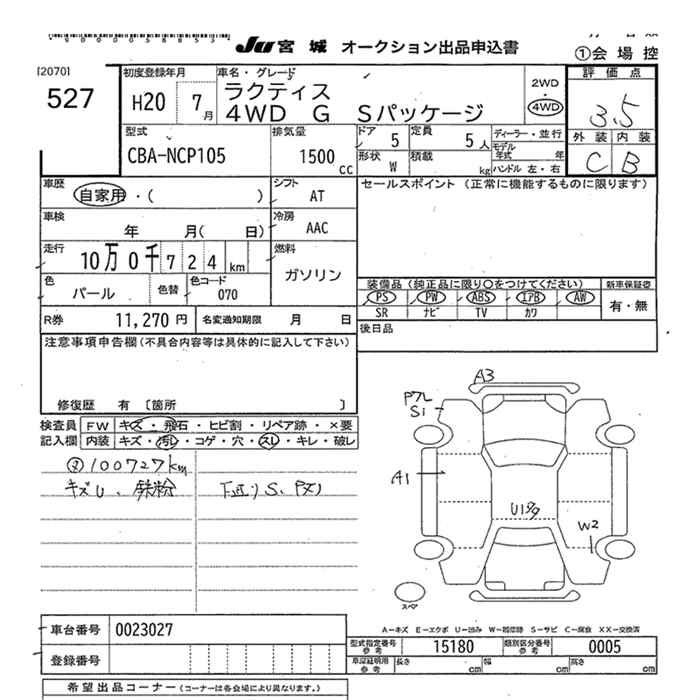 Ju 宮城 オークション出品申込書
①会場控
[2070]
527
初度登録年月
H20 7月
車名・グレード
ラクティス
4WD G Sパッケージ
2WD
・
4WD
評価点
3.5
外装 内装
C B
型式
CBA-NCP105
排気量
1500 cc
ドア 5
定員 5人
ディーラー・並行
形状 W
積載 kg
モデル年式 年
ハンドル 左・右
車歴
自家用・( )
シフト
AT
セールスポイント (正常に機能するものに限ります)
車検
年 月( 日)
冷房
AAC
走行
10万0千724km
燃料
ガソリン
色
パール
色替
色コード
070
装備品 (純正品に限り○をつけてください)
新車保証書
PS PW ABS エアB AW
SR ナビ TV カワ
有・無
R券 11,270円
名変通知期限 月 日
後日品
注意事項申告欄(不具合内容等は具体的に記入して下さい)
修復歴 有 〔箇所 〕
検査員記入欄
FW キズ・飛石・ヒビ割・リペア跡・×要
内装 キズ・汚レ・コゲ・穴・スレ・キレ・破レ
100727km
キズU、鉄粉
下廻りS、
A3
S1
A1
W2
スペア
A−キズ E−エクボ U−凹み W−補修跡 S−サビ C−腐食 XX−交換済
車台番号 0023027
型式指定番号参考 15180
類別区分番号参考 0005
登録番号
車庫証明用参考 長さ cm 幅 cm 高さ cm
希望出品コーナー(コーナーは各会場により異なります。)